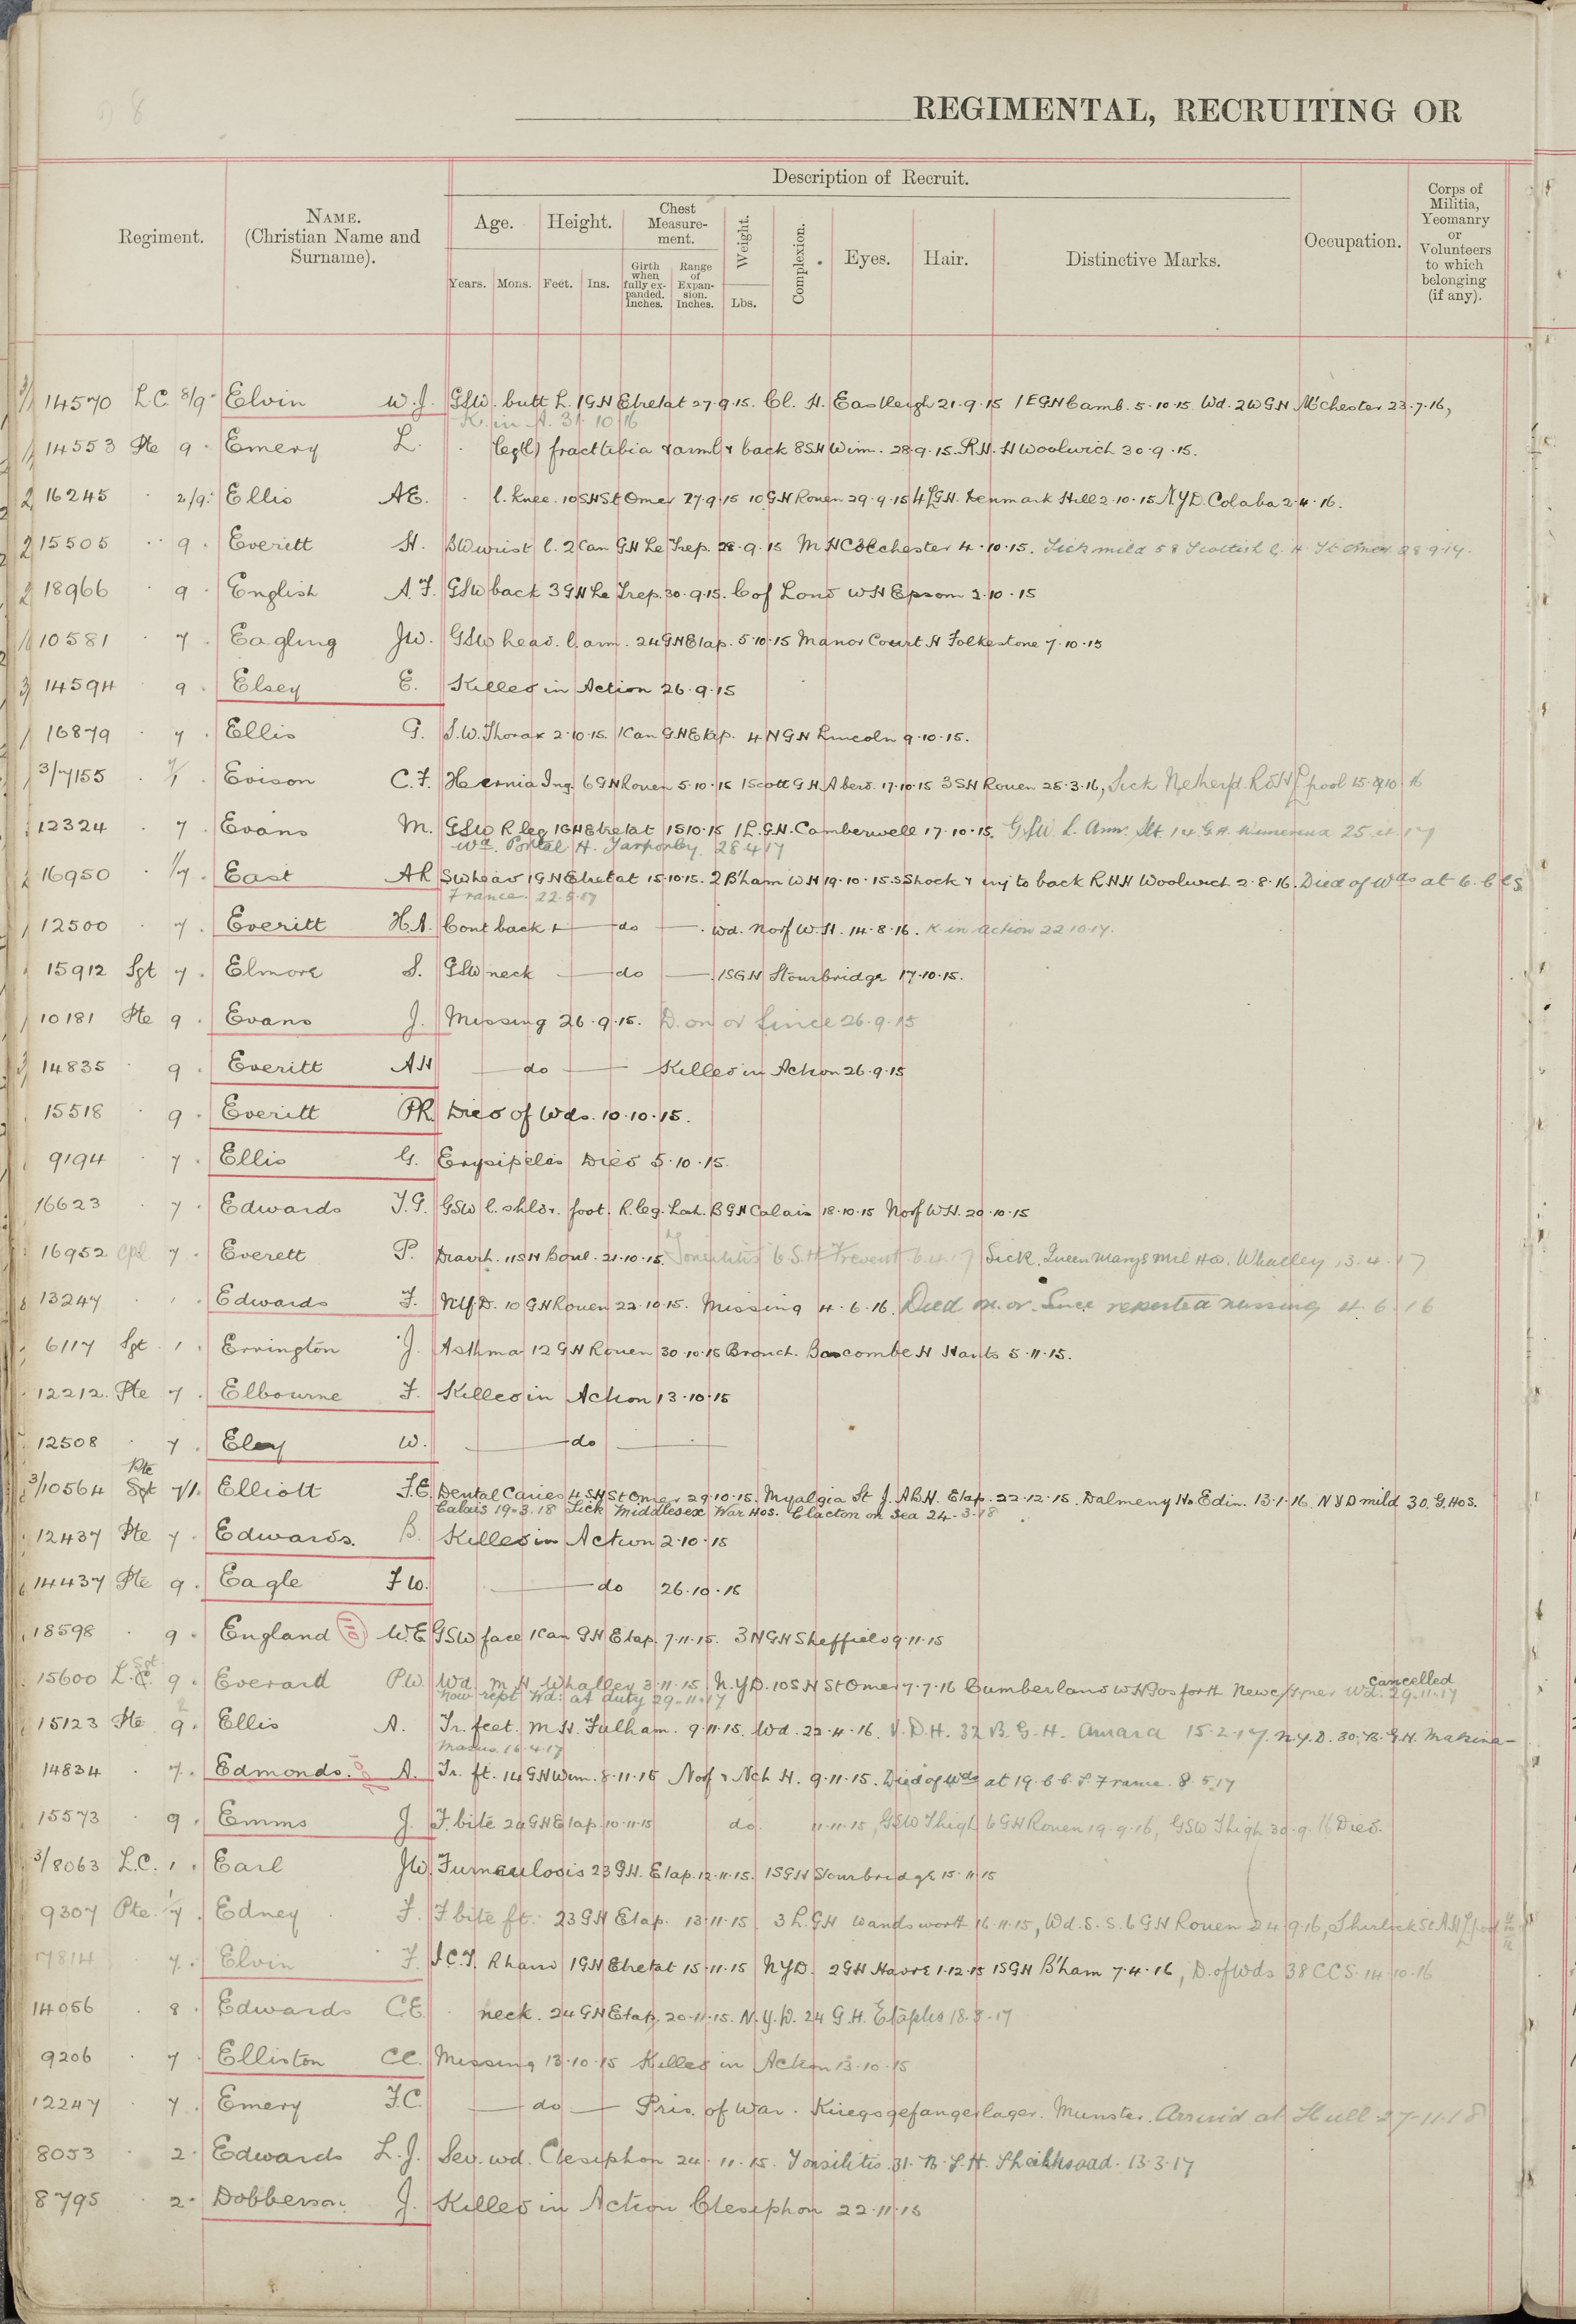 8
REGIMENTAL, RECRUITING OR
Regiment.
NAME.
(Christian Name and
Surname).
Description of Recruit.
Age.
Height.
Chest
Measure-
ment.
Weight.
Complexion.
Eyes.
Hair.
Distinctive Marks.
Occupation.
Corps of
Militia,
Yeomanry
or
Volunteers
to which
belonging
(if any).
Years.
Mons.
Feet.
Ins.
Girth
when
fully ex-
panded.
Inches.
Range
of
Expan-
sion.
Inches.
Lbs.
14570 L.C. 8/9 Elvin W.J. GSW. butt L. 1GN Etretat 27.9.15. Cl. H. Eastleigh 21.9.15 1EGN Camb. 5.10.15. Wd. 2WGN M'chester 23.7.16,
K. in A. 31.10.16
14553 Pte 9 Emery L. leg(l) fract tibia & arm l & back 8SH Wim. 28.9.15. R.H. H Woolwich 30.9.15.
16245 2/9 Ellis AE. l. knee. 10SHSt Omer 27.9.15 10GN Rouen 29.9.15 4LGH. Denmark Hill 2.10.15 NYD. Colaba 2.4.16.
15505 9 Everitt H. BW wrist l. 2 Can GH Le Trep. 28.9.15 MH Colchester 4.10.15. Sick mild 58 Scottish G. H. St Omer 28.9.17.
18966 9 English A.F. GSW back 3GN Le Trep. 30.9.15. Cof Lond WH Epsom 2.10.15
10581 7 Eagling JW. GSW head. l. arm. 24GN Etap. 5.10.15 Manor Court H Folkestone 7.10.15
14594 9 Elsey E. Killed in Action 26.9.15
16879 7 Ellis G. S.W. Thorax 2.10.15. 1Can GN Etap. 4NGN Lincoln 9.10.15.
3/7155 7/1 Evison C.F. Hernia Ing. 6GN Rouen 5.10.15 1Scott G.H. Aberd. 17.10.15 3SH Rouen 25.3.16, Sick Netherfd Rd H L'pool 15.10.16
12324 7 Evans M. GSW R leg 1GN Etretat 15.10.15 1L.G.H. Camberwell 17.10.15. GSW L. Arm. Slt 14 G.H. Wimereux 25.4.17
Wd. Portal H. Tarporley. 28 4 17
16950 1/7 East AR SW head 1GN Etretat 15.10.15. 2 B'ham WH 19.10.15. SShock & inj to back RHH Woolwich 2.8.16. Died of Wds at 6. CCS
France. 22.5.17
12500 7 Everitt H.A. Cont back & do Wd. Norf W.H. 14.8.16. K in action 22.10.17.
15912 Sgt 7 Elmore S. GSW neck do 1SGN Stourbridge 17.10.15.
10181 Pte 9 Evans J. Missing 26.9.15. D. on or Since 26.9.15
14835 9 Everitt AH do Killed in Action 26.9.15
15518 9 Everitt PR. Died of Wds. 10.10.15.
9194 7 Ellis G. Erysipelas Died 5.10.15.
16623 7 Edwards T.G. GSW l. shldr. foot. R. leg. Lach. BGN Calais 18.10.15 Norf WH. 20.10.15
16952 Cpl 7 Everett P. Diarrh. 11SH Boul. 21.10.15. Tonsilitis 6.S.H Frevent 6.4.17 Sick. Queen Marys Mil Hos. Whalley 13.4.17
13247 1 Edwards F. N.Y.D. 10 GN Rouen 22.10.15. Missing 4.6.16. Died on or Since reported missing 4.6.16
6117 Sgt 1 Errington J. Asthma 12 GN Rouen 30.10.15 Bronch. Boscombe H Hants 5.11.15.
12212. Pte 7 Elbourne F. Killed in Action 13.10.15
12508 7 Eley W. do
3/10564 Pte Sgt 7/1 Elliott F.E. Dental Caries 4SH St Omer 29.10.15. Myalgia St. J. A.B.H. Etap. 22.12.15. Dalmeny Ho Edin. 13.1.16. NYD mild 30. G. Hos.
Calais 19.3.18 Sick Middlesex War Hos. Clacton on Sea 24.3.18
12437 Pte 7 Edwards. B. Killed in Action 2.10.15
14437 Pte 9 Eagle F W. do 26.10.15
18598 9 England W.E GSW face 1Can GN Etap. 7.11.15. 3NGN Sheffield 9.11.15
15600 L.C. Sgt 9 Everard P.W. Wd. M.H. Whalley 3.11.15 N.Y.D. 10SH St Omer 7.7.16 Cumberland WH Gosforth Newc/Tyne Wd. 29.11.17 Cancelled
now rept Wd. at duty 29.11.17
15123 Pte 9 Ellis A. Tr. feet. M.H. Fulham. 9.11.15. Wd. 22.4.16. V.D.H. 32 B.G.H. Amara 15.2.17. N.Y.D. 30. B.G.H. Makina-
Masus. 16.4.17
14834 7 Edmonds. A. Tr. ft. 14 GH Wim. 8.11.15 Norf & Nch H. 9.11.15. Died of Wds at 19. C.C.S. France. 8.5.17
15573 9 Emms J. F. bite 24GN Etap. 10.11.15 do. 11.11.15, GSW Thigh 6GN Rouen 19.9.16, GSW Thigh 30.9.16 Died.
3/8063 L.C. 1 Earl JW. Furnculosis 23 GH. Etap. 12.11.15. 1SGN Stourbridge 15.11.15
9307 Pte. 1/7 Edney F. F. bite ft. 23 GH Etap. 13.11.15. 3 L.GH Wandsworth 16.11.15, Wd. S.S. 6 GN Rouen 24.9.16,
17814 7 Elvin F. I.C.T. R hand 1GN Etretat 15.11.15 NYD. 2GN Havre 1.12.15 1SGH B'ham 7.4.16, D. of Wds 38 CCS. 14.10.16
14056 8 Edwards C.E. neck. 24GN Etap. 20.11.15. N.Y.D. 24 G.H. Etaples 18.8.17
9206 7 Elliston CC. Missing 13.10.15 Killed in Action 13.10.15
12247 7 Emery F.C. do Pris. of War. Kriegsgefangenlager. Munster. Arrived at Hull 27.11.18
8053 2 Edwards L.J. Sev. wd. Ctesiphon 24.11.15. Tonsilitis. 31. B.S.H. Sheikhsaad. 13.3.17
8795 2 Dobberson. J. Killed in Action Ctesiphon 22.11.15